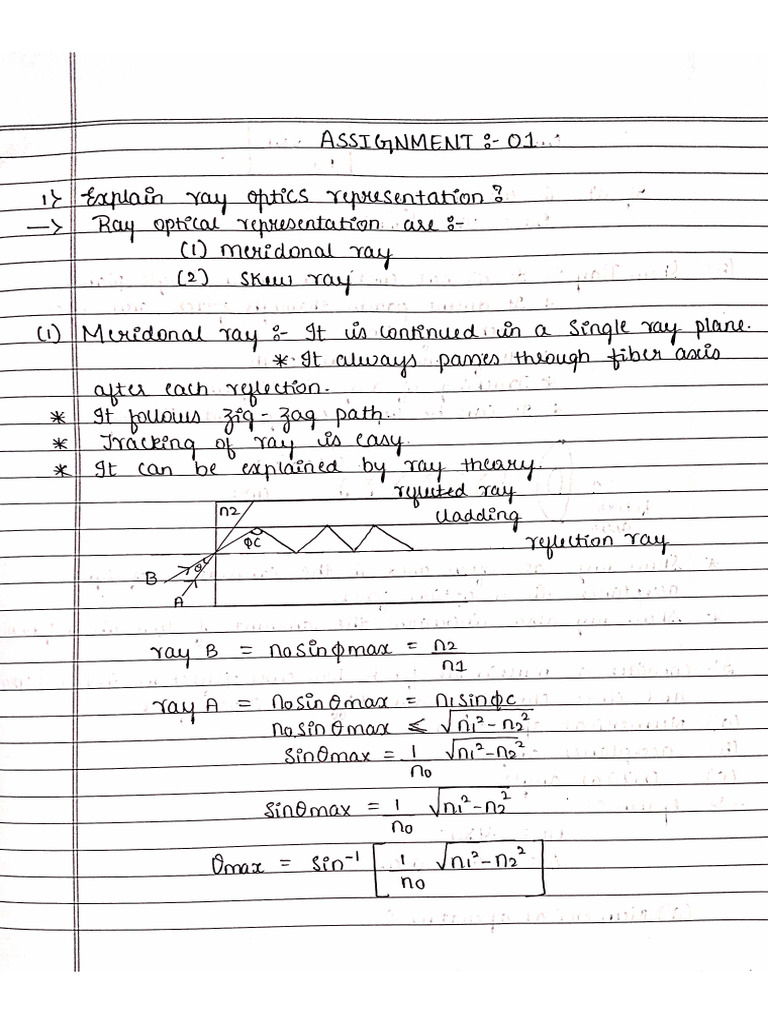 ASSIGNMENT :- 01
1) Explain ray optics representation?
→ Ray optical representation are :-
(1) Meridonal ray
(2) Skew ray
(1) Meridonal ray :- It is continued in a single ray plane.
* It always passes through fiber axis
after each reflection.
* It follows zig-zag path.
* Tracking of ray is easy.
* It can be explained by ray theory.
reflected ray
n2
cladding
φc
reflection ray
θ
B
A
ray B = n0 sin φmax = n2/n1
ray A = n0 sin θmax = n1 sin φc
n0 sin θmax ≤ √n1²-n2²
sin θmax = 1/n0 √n1²-n2²
sin θmax = 1/n0 √n1²-n2²
θmax = sin⁻¹ [1/n0 √n1²-n2²]